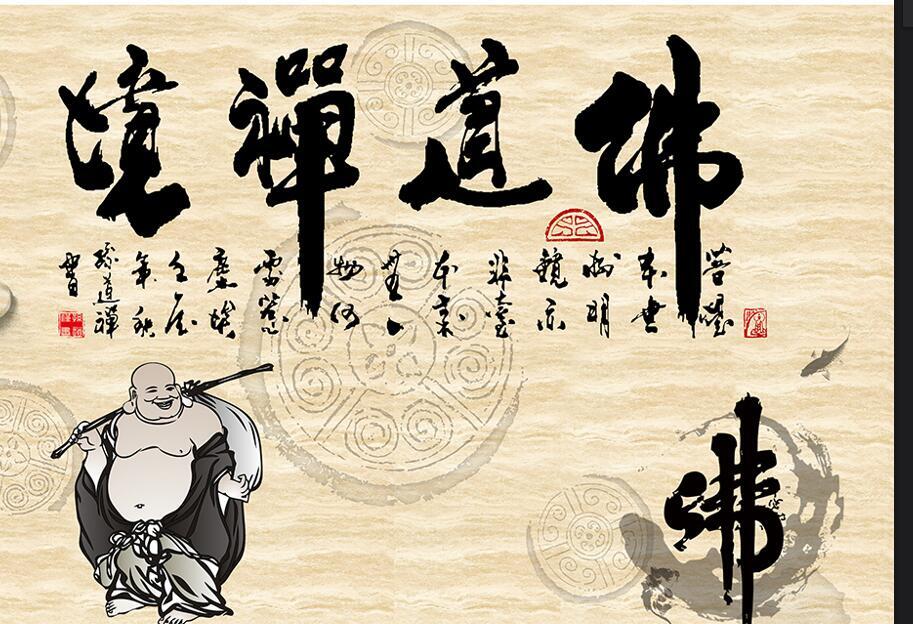 佛道禪境
菩提
本無
樹明
鏡亦
非臺
本來
無一
物何
處惹
塵埃
年秋
道禪
佛